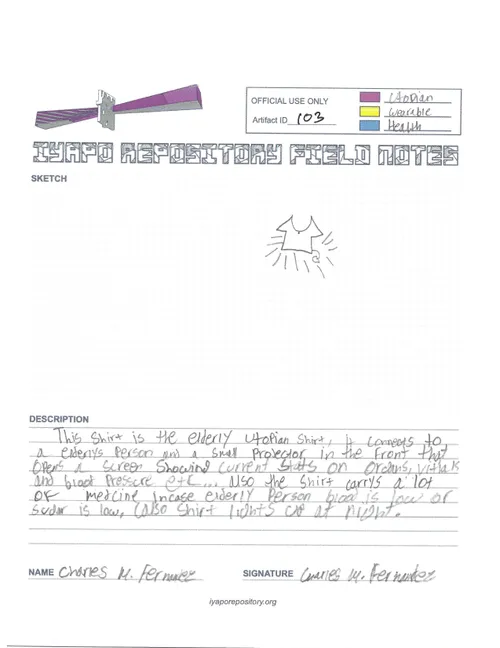 OFFICIAL USE ONLY
Artifact ID 103
Utopian
wearable
Health
IYAPO REPOSITORY FIELD NOTES
SKETCH
DESCRIPTION
This Shirt is the elderly Utopian Shirt, it connects to
a elderlys Person and a small Projector in the Front that
opens a Screen Showing Current Stats on Organs, vitals
and blood Pressure etc... Also the Shirt carrys a lot
OF medcine Incase elderly Person blood is low or
Sudar is low, (also Shirt lights up at night.
NAME Charles M. Fernandez
SIGNATURE Charles M. Fernandez
iyaporepository.org